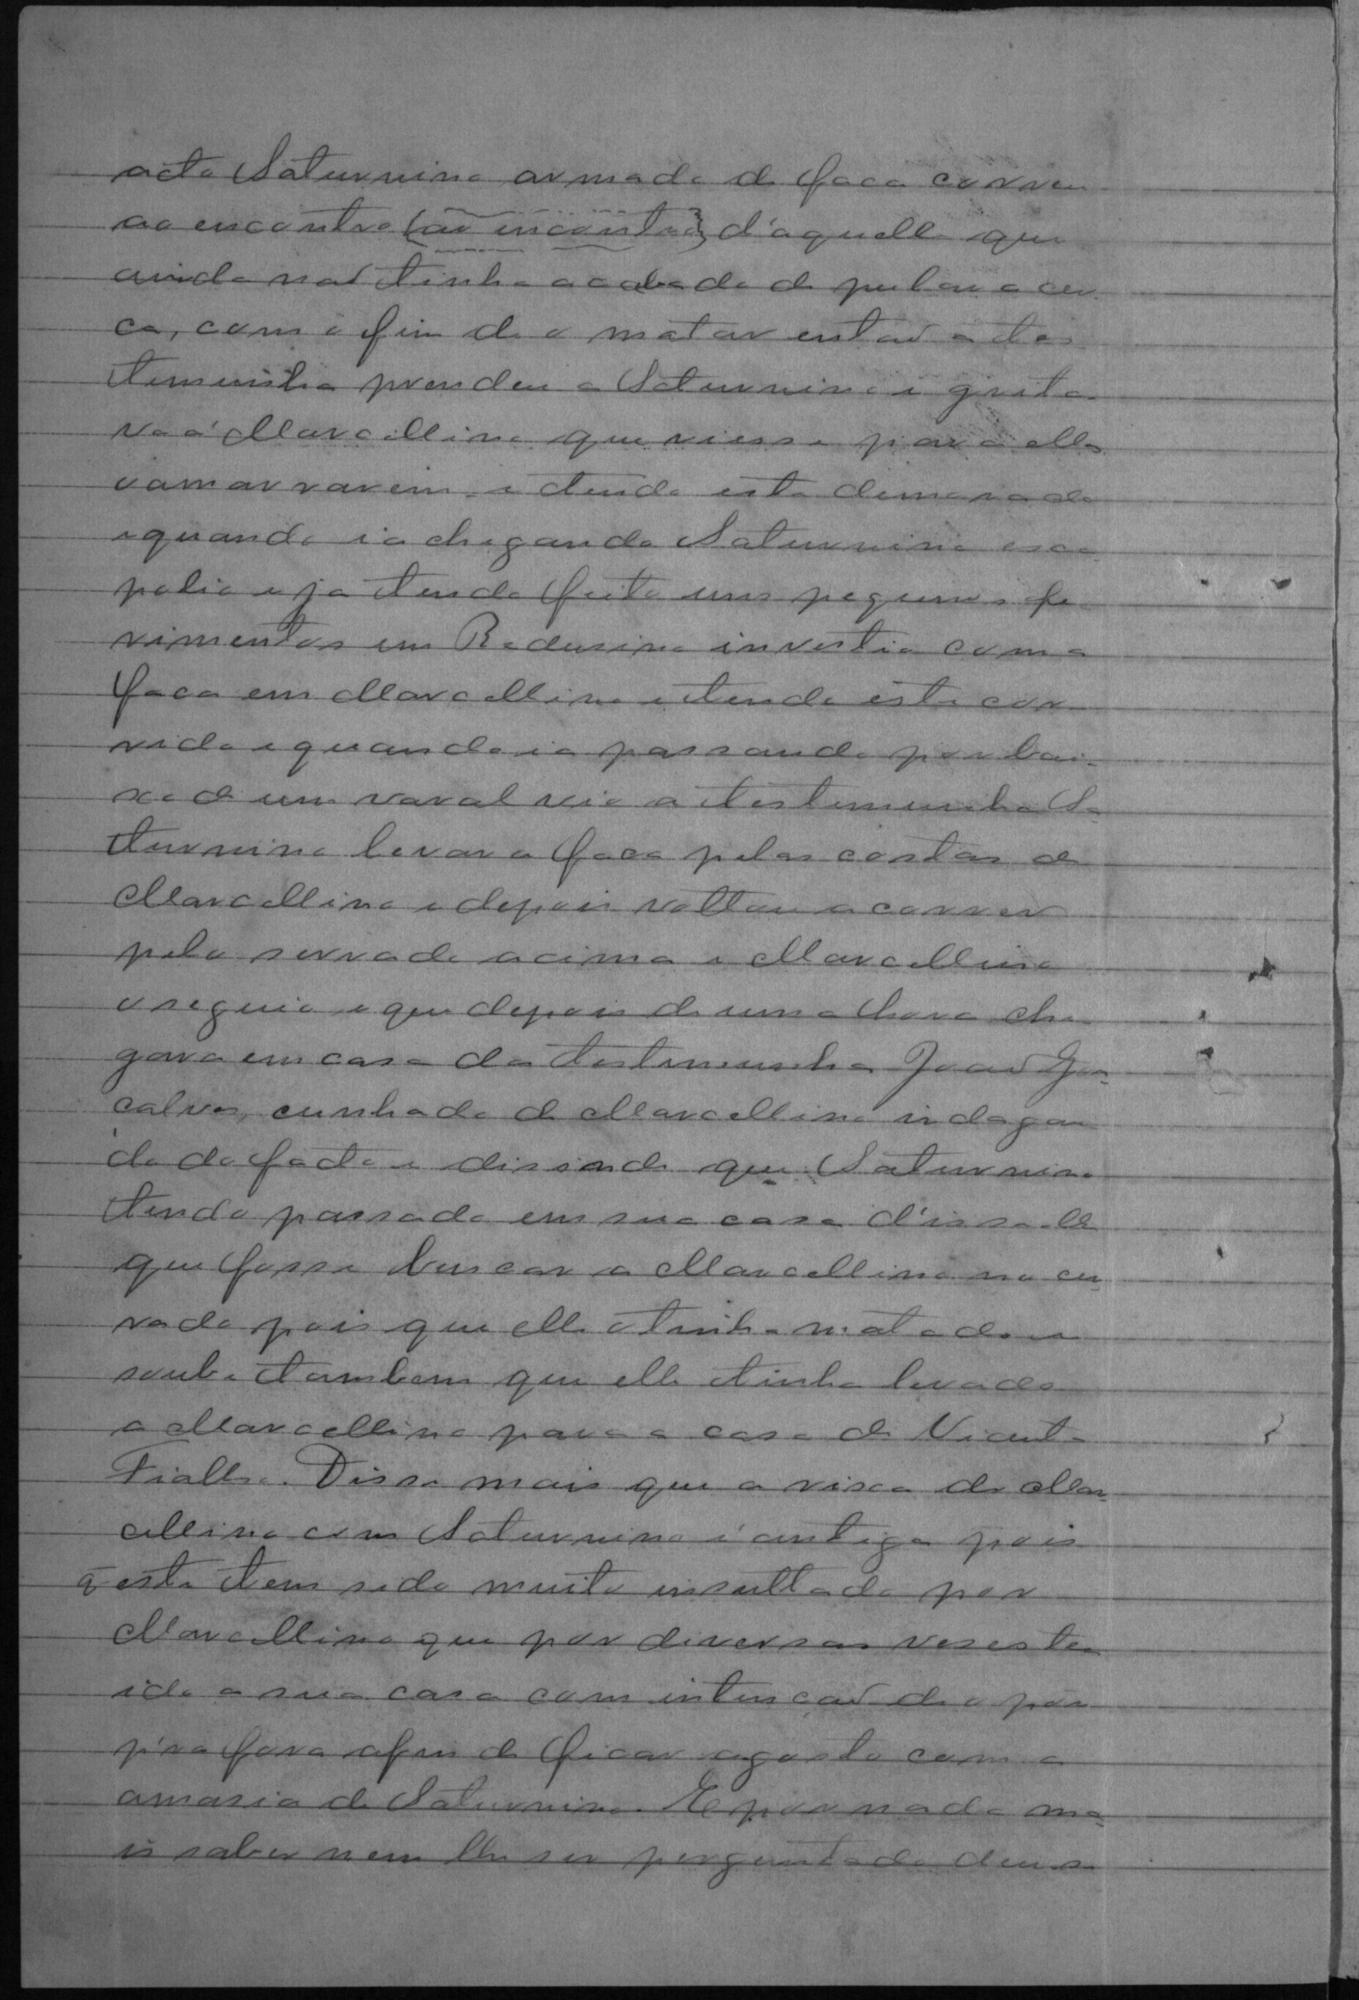 acto Saturnino armado de faca correu
ao encontro (ao incontro) d'aquelle que
ainda não tinha acabado de pular a cer
ca, com o fim de o matar então a tes
temunha prendeu a Saturnino e grita
va á Marcellino que viesse para elles
o amarrarem, e tendo este demorado
e quando ia chegando Saturnino esca
polio e ja tendo feito uns pequenos fe
rimentos em Redusino investio com a
faca em Marcellino e tendo este cor
rido e quando ia passando por bai
xo de um varal vio a testemunha Sa
turnino levar a faca pelas costas de
Marcellino e depois voltou a correr
pelo serrado acima e Marcellino
o seguio e que depois de uma hora che
gara em casa da testemunha João Gon
calves, cunhado de Marcellino indagan
do do facto e disendo que Saturnino
tendo passado em sua casa d'issa-lh
que fosse buscar a Marcellino no cer
rado pois que elle o tinha matado e
soube tambem que elle tinha levado
a Marcellino para a casa de Vicente
Fialho. Disse mais que a rixa de Mar
cellino com Saturnino é antiga pois
q̃ este tem sido muito insultado por
Marcellino que por diversas veses tem
ido a sua casa com intenção de o por
p'ra fora afim de ficar a gosto com a
amasia de Saturnino. E por nada ma
is saber nem lhe ser perguntado deu-se